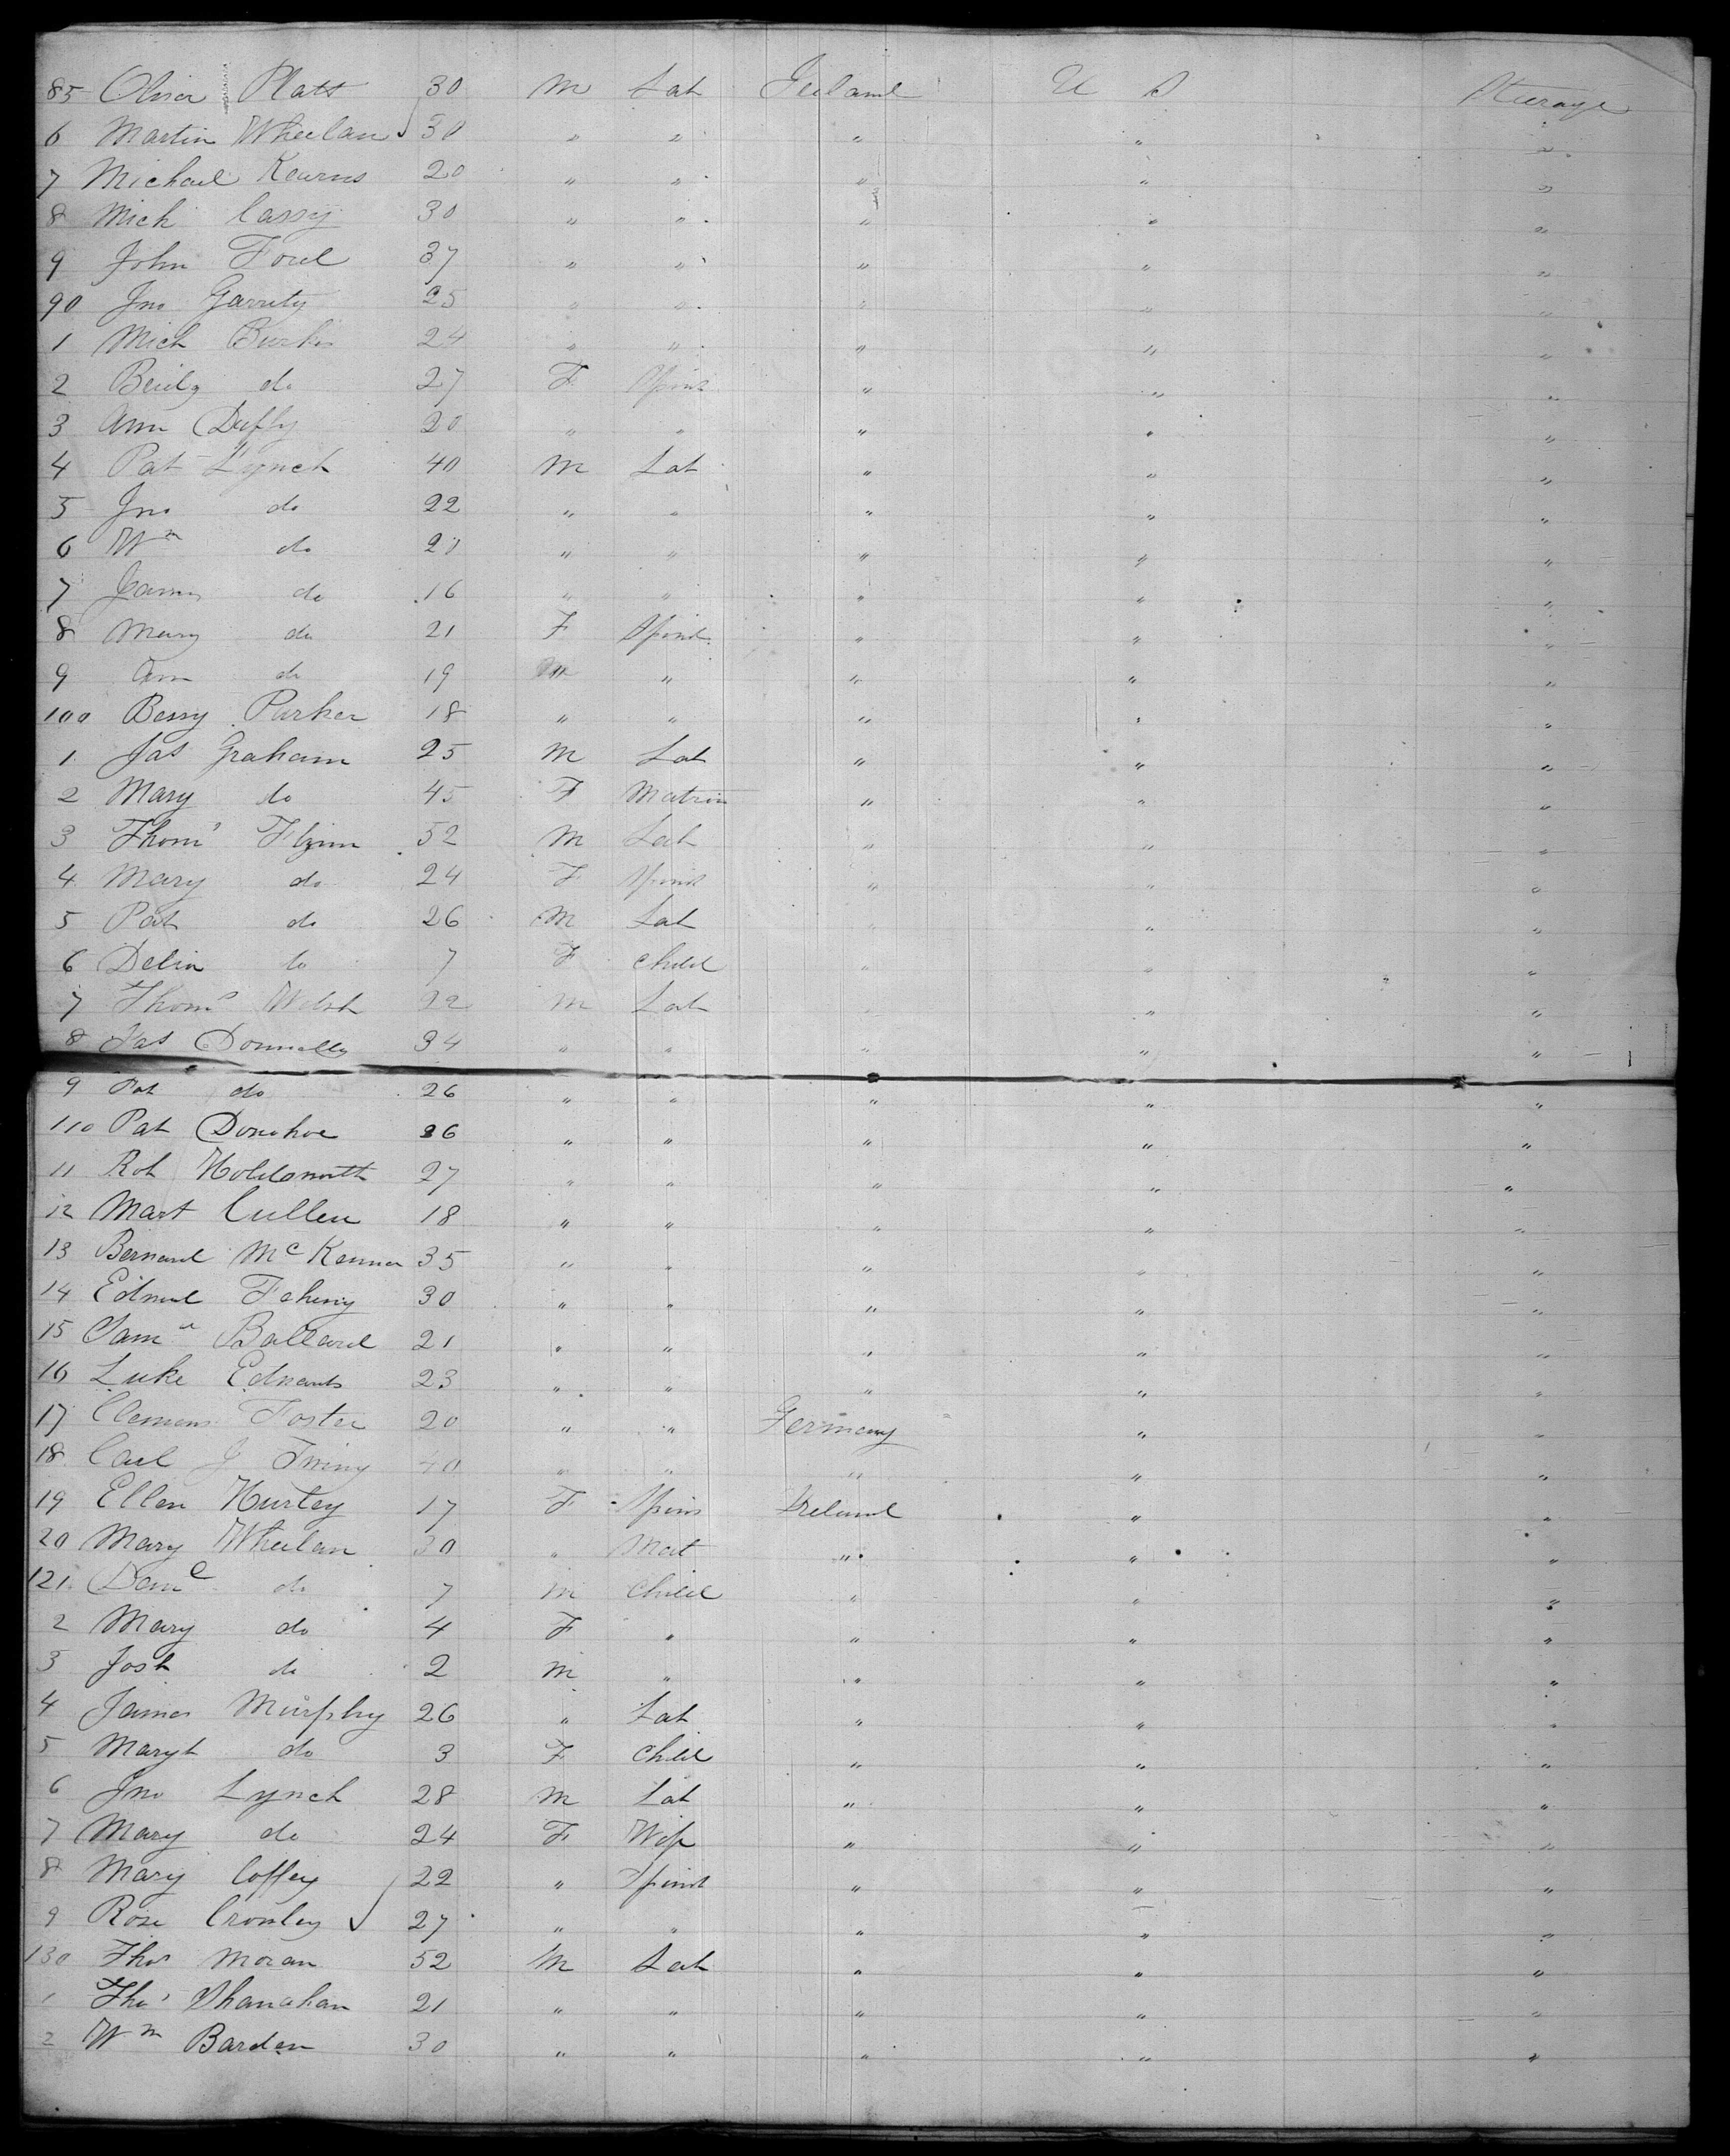 85 Oliver Platt 30 M Lab Ireland U S Steerage
6 Martin Wheelan 30 " " " " "
7 Michael Kearns 20 " " " " "
8 Mich Cassy 30 " " " " "
9 John Ford 37 " " " " "
90 Jno Garrity 25 " " " " "
1 Mich Burke 24 " " " " "
2 do 27 F Spinst " " "
3 Ann Duffy 20 " " " " "
4 Pat Lynch 40 M Lab " " "
5 Jno do 22 " " " " "
6 Wm do 20 " " " " "
7 James do 16 " " " " "
8 Mary do 21 F Spinst " " "
9 Ann do 19 " " " "
100 Bessy Parker 18 " " " " "
1 Jas Graham 25 M Lab " " "
2 Mary do 45 F Matron " " "
3 Thoms Flynn 52 M Lab " " "
4 Mary do 24 F Spinst " " "
5 Pat do 26 M Lab " " "
6 Delia do 7 F Child " " "
7 Thoms Welsh 22 M Lab " " "
8 Jas Donnelly 34 " " " " "
9 Pat do 26 " " " " "
110 Pat Donohoe 26 " " " " "
11 Rob Holdsworth 27 " " " " "
12 Mart Cullen 18 " " " " "
13 Bernard McKenna 35 " " " " "
14 Edmd Faheny 30 " " " " "
15 Saml Ballard 21 " " " " "
16 Luke Edwards 23 " " " " "
17 Clemens Foster 20 " " Germany " "
18 Carl J " " " " "
19 Ellen Hurley 17 F Spins Ireland " "
20 Mary Wheelan 30 " Mat " " "
121 do 7 M Child " " "
2 Mary do 4 F " " " "
3 Josh do 2 M " " " "
4 James Murphy 26 " Lab " " "
5 Margt do 3 F Child " " "
6 Jno Lynch 28 M Lab " " "
7 Mary do 24 F Wife " " "
8 Mary Coffey 22 " Spinst " " "
9 Rose Crowley 27 " " " " "
130 Thos Moran 52 M Lab " " "
1 Thos Shanahan 21 " " " " "
2 Wm Barden 30 " " " " "